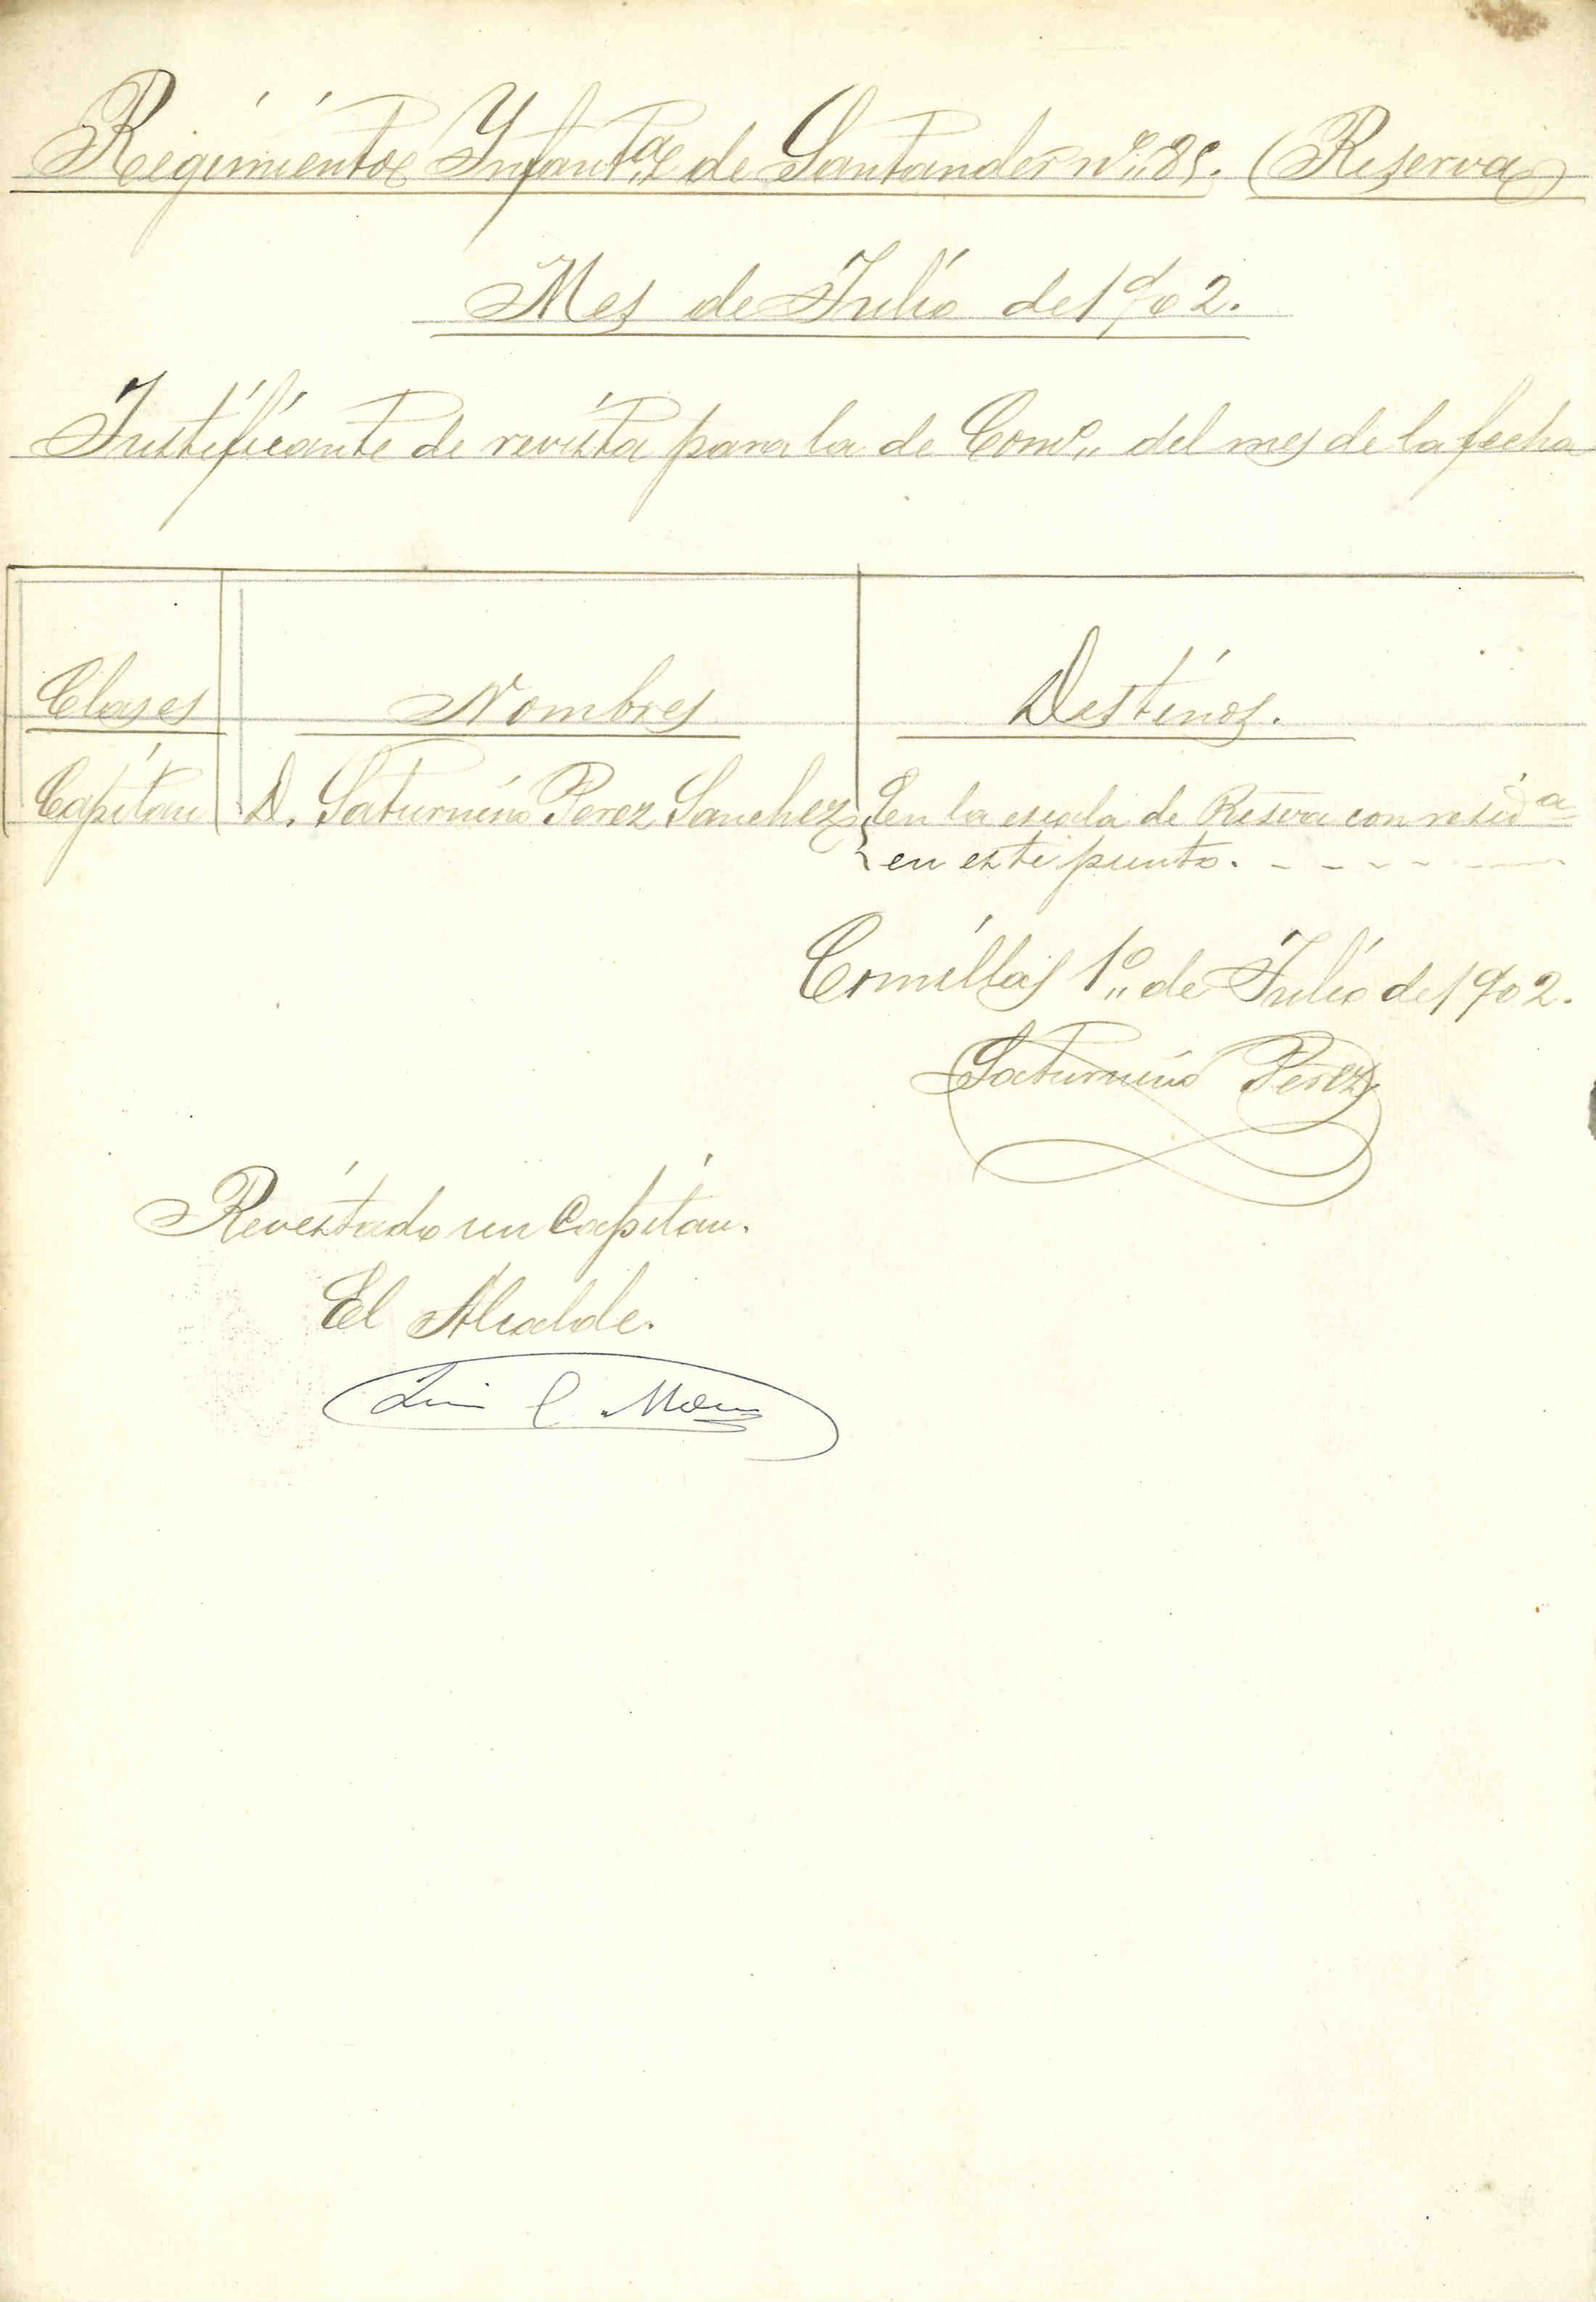 Regimiento Infant.ª de Santander nº 85. (Reserva)
Mes de Julio de 1902.
Justificante de revista para la de Comº del mes de la fecha
Clases Nombres Destinos.
Capitan D. Saturnino Perez Sanchez En la escala de Reserva con resid.ª
en este punto.
Comillas 1º de Julio de 1902.
Saturnino Perez
Revistado un Capitan.
El Alcalde.